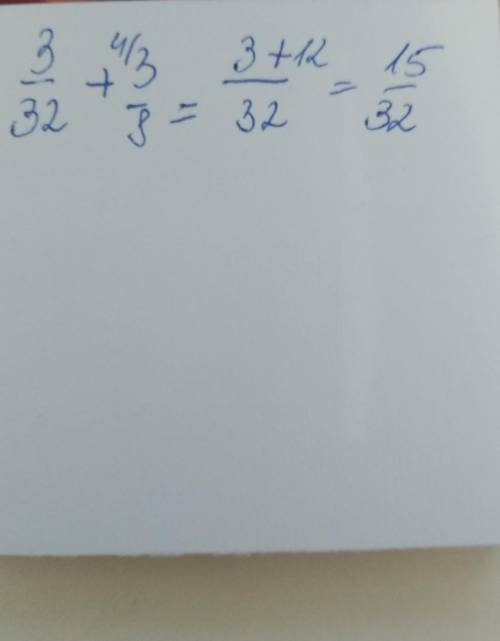 3/32 + ⁴⁄3/8 = 3+12/32 = 15/32